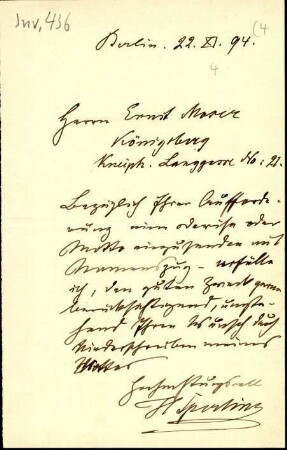 Inv. 436
(4
Berlin. 22. XI. 94.
4
Herrn Ernst Moser
Königsberg
Kneiph. Langgasse No: 21.
Bezüglich Ihrer Aufforde-
rung eine oder
Motto einzusenden mit
Namenszug - erfülle
ich, den guten Zweck gerne
berücksichtigend, umste-
hend Ihren Wunsch durch
Niederschreiben meines
Mottos
Hochachtungsvoll
H Sperling